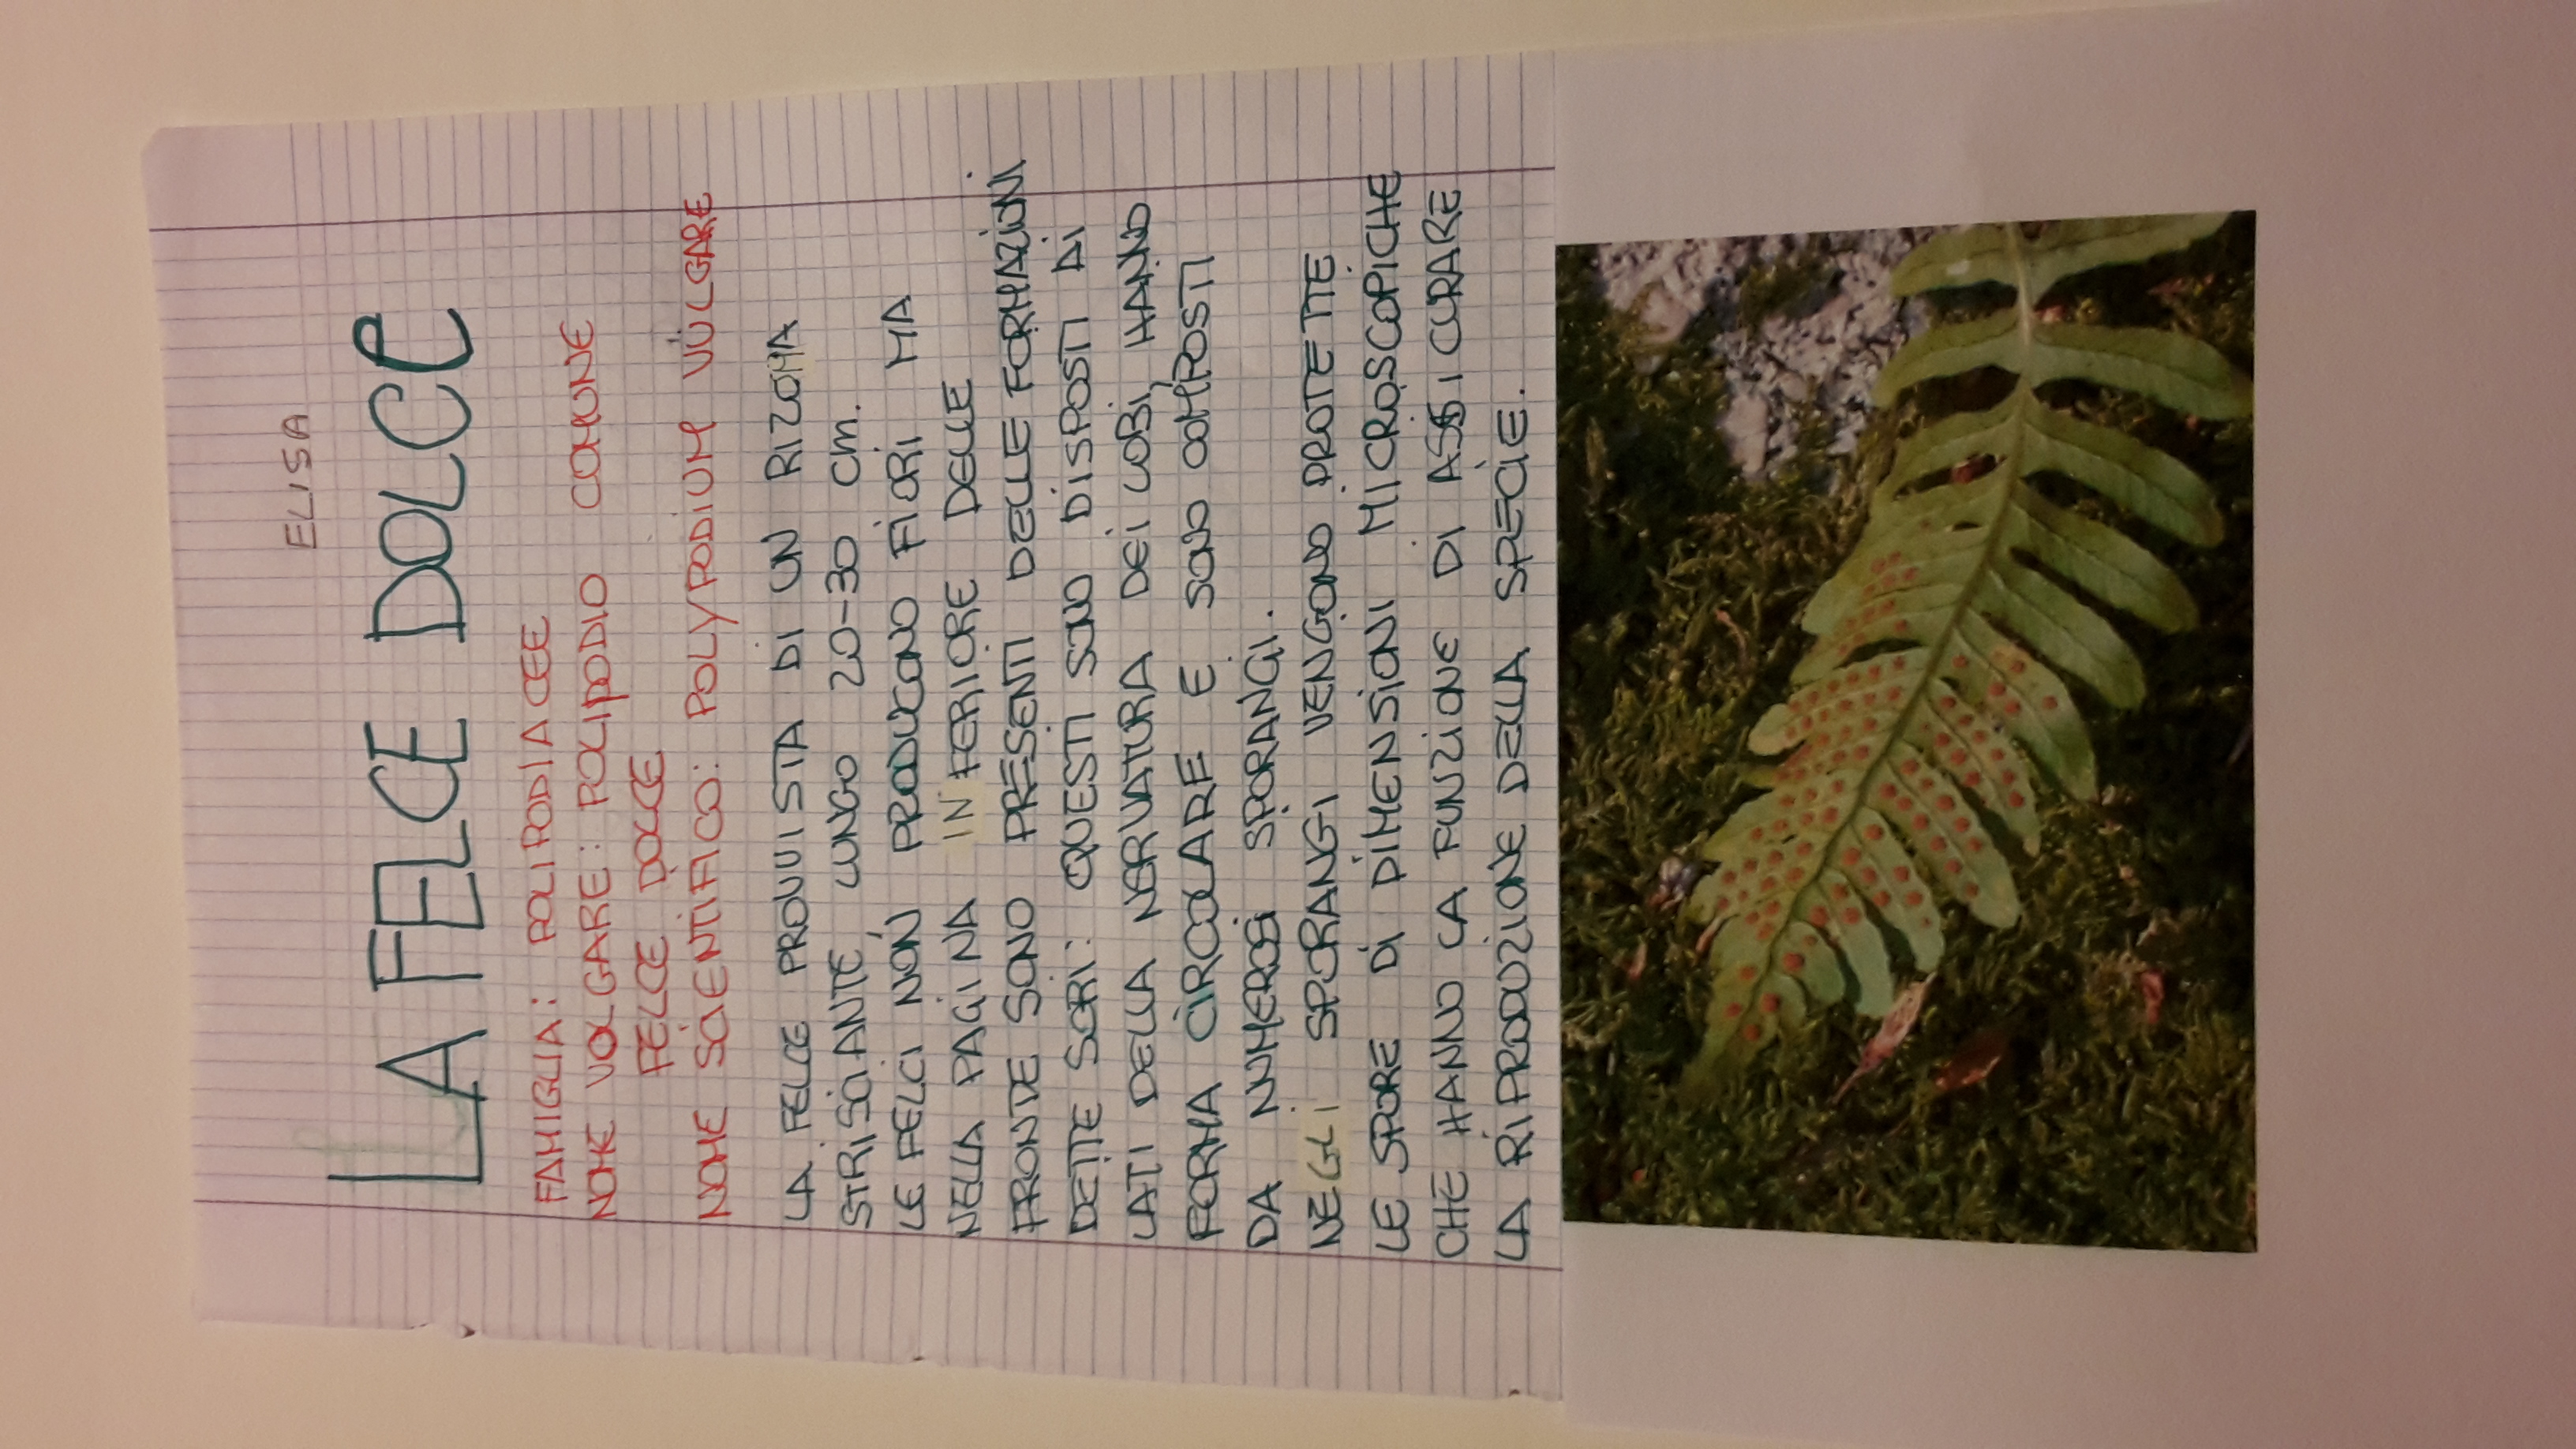 ELISA
LA FELCE DOLCE
FAMIGLIA: POLIPODIACEE
NOME VOLGARE: POLIPODIO COMUNE
FELCE DOLCE
NOME SCIENTIFICO: POLYPODIUM VULGARE
LA FELCE PROVVISTA DI UN RIZOMA
STRISCIANTE LUNGO 20-30 cm.
LE FELCI NON PRODUCONO FIORI MA
NELLA PAGINA INFERIORE DELLE
FRONTE SONO PRESENTI DELLE FORMAZIONI.
DETTE SORI: QUESTI SONO DISPOSTI DI
LATI DELLA NERVATURA DEI LOBI, HANNO
FORMA CIRCOLARE E SONO COMPOSTI
DA NUMEROSI SPORANGI.
NEGLI SPORANGI VENGONO PROTETTE
LE SPORE DI DIMENSIONI MICROSCOPICHE
CHE HANNO LA FUNZIONE DI ASSICURARE
LA RIPRODUZIONE DELLA SPECIE.